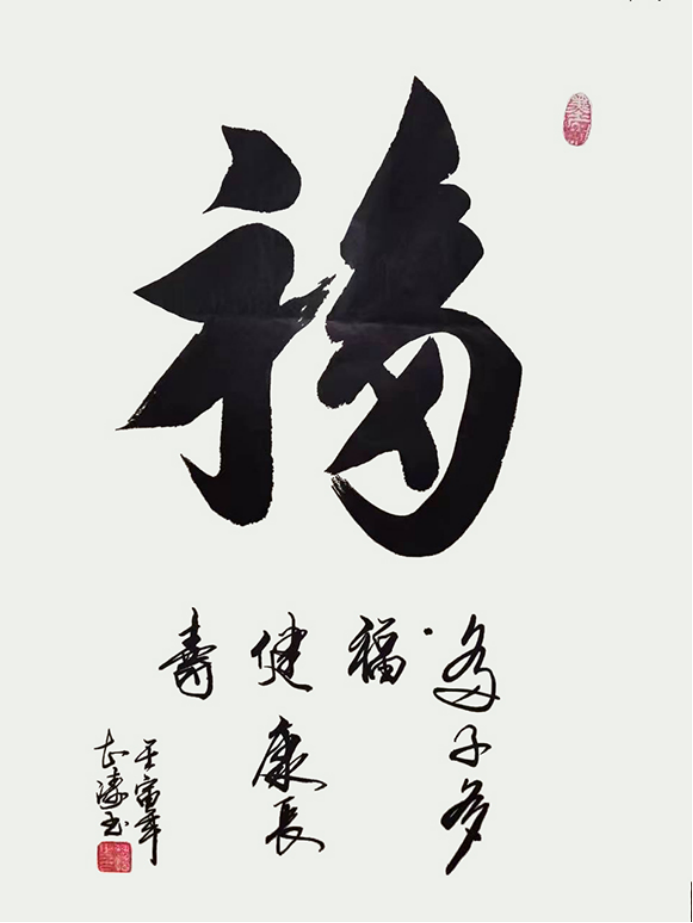 福
多子多
福
健康長
壽
壬寅年
志濤书